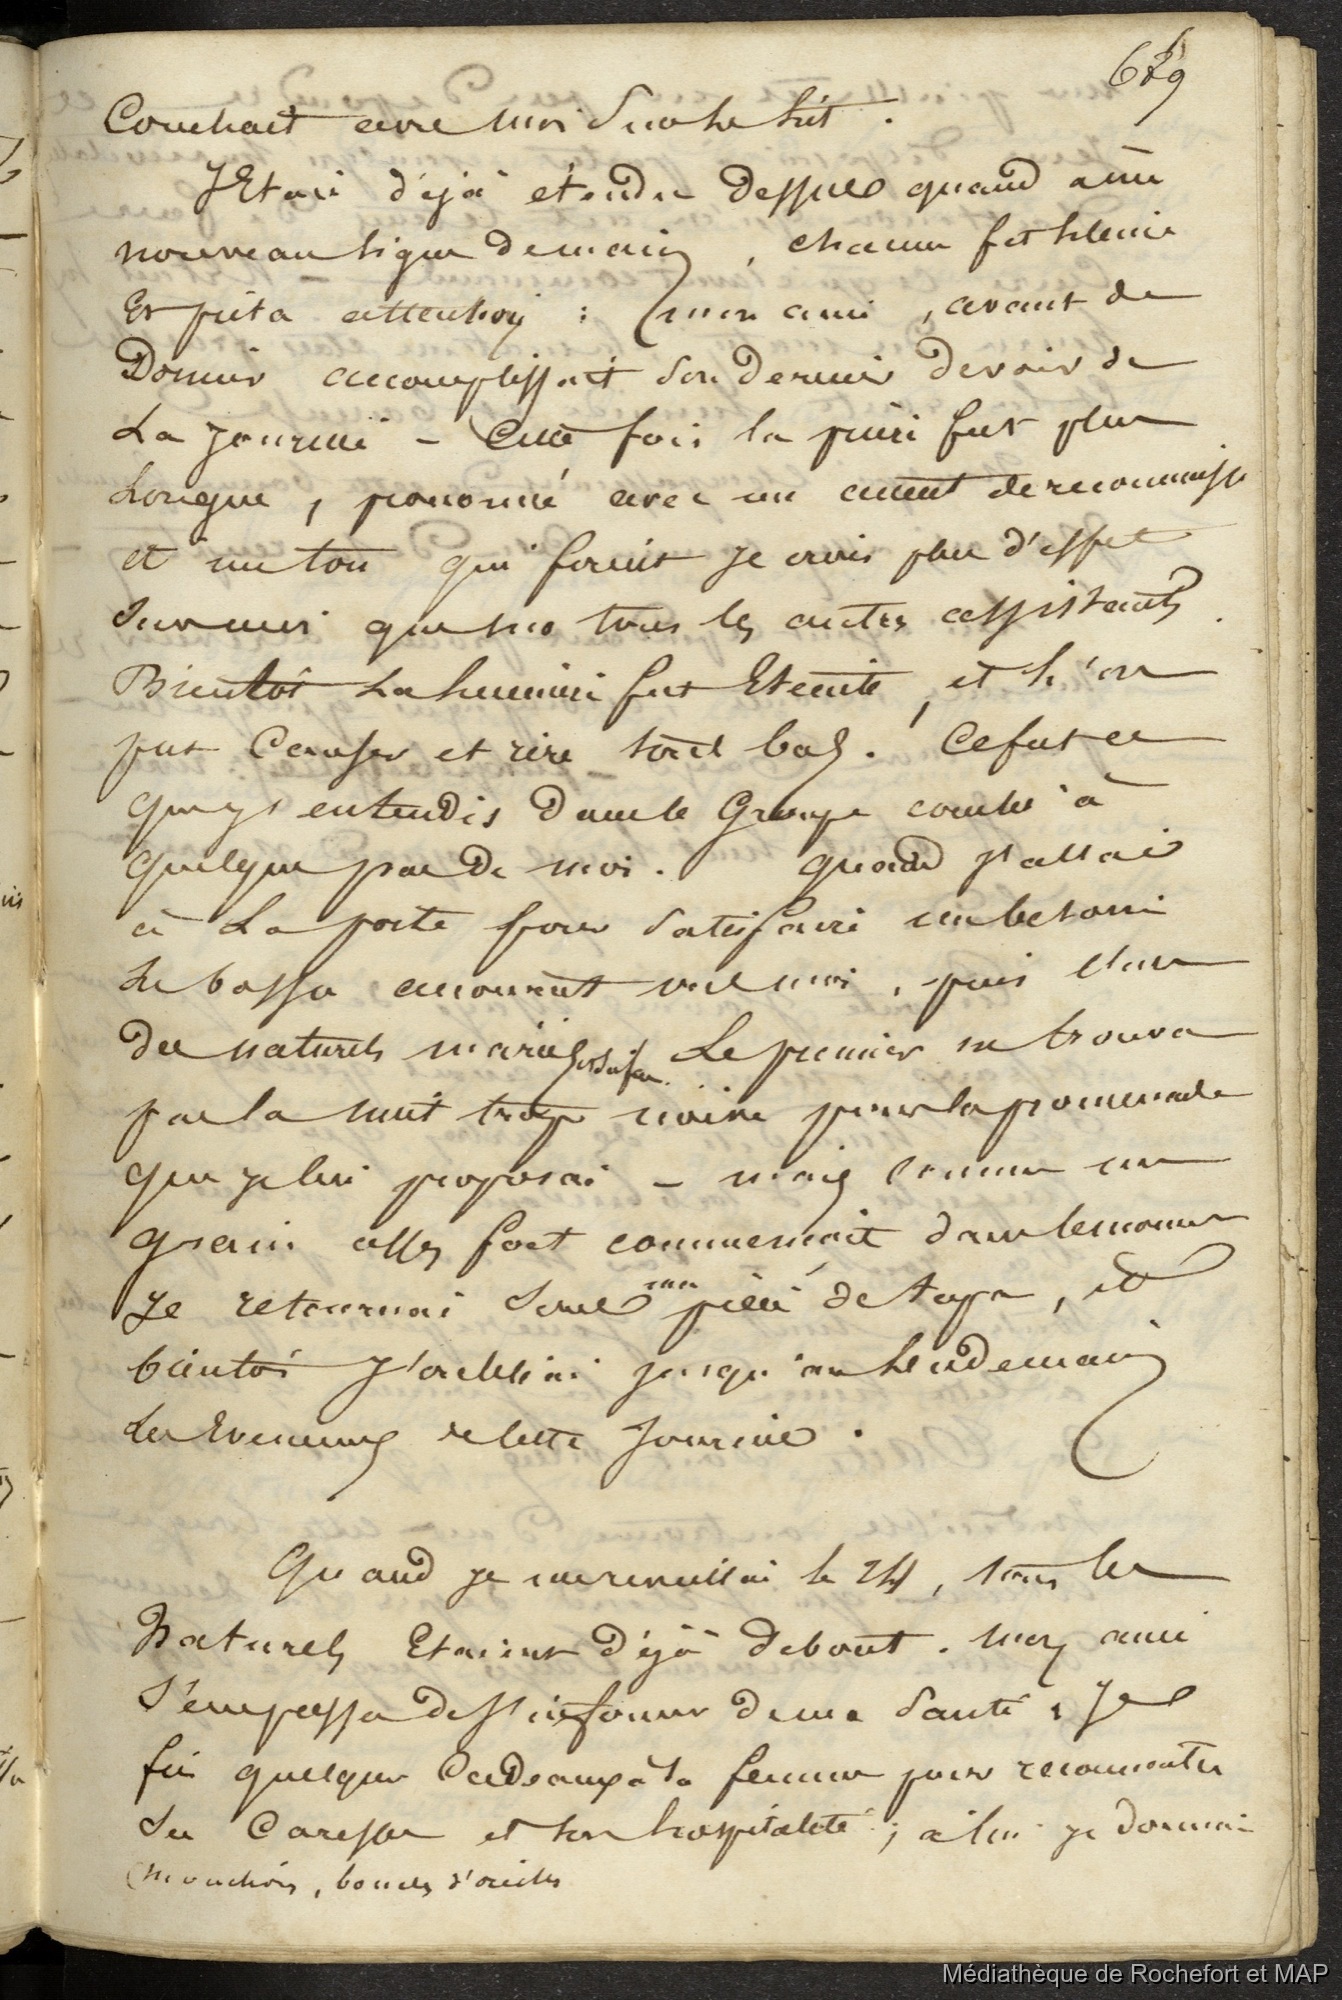 629
Couchait avec moi sur le lit.
J'Etais déjà étendu dessus quand à un
nouveau signe de main, chacun fit silence
Et prêta attention : mon ami, avant de
Dormir accomplissait son dernier devoir de
La journée – Cette fois la prière fut plus
Longue, prononcé avec un accent de reconnaiss
et un ton qui firent je crois plus d'effet
sur moi que sur tous les autres assistants.
Bientôt La lumière fut Eteinte, et l'on
put Causer et rire tout bas. Ce fut ce
que j'entendis dans le Groupe couché à
quelques pas de moi. quand j'allai
à La porte pour satisfaire un besoin
Le bossu accourut vers moi, puis l'un
des naturels mariés. Le premier me trouva
pas la nuit trop noire pour la promenade
que je lui proposai – mais comme un
grain assez fort commençait dans le moment
Je retournai sous ma pièce de tapa, et
bientôt J'oubliai jusqu'au lendemain
Les Evenemens de cette Journée.
Quand je me reveillai le 24, tous les
Naturels Etaient Déjà debout. Mon ami
s'empressa de s'informer de ma santé, Je
fis quelques Cadeaux à sa femme pour reconnaitre
ses Caresses et son hospitalité ; à lui je donnai
mouchoirs, boucles d'oreilles
Médiathèque de Rochefort et MAP